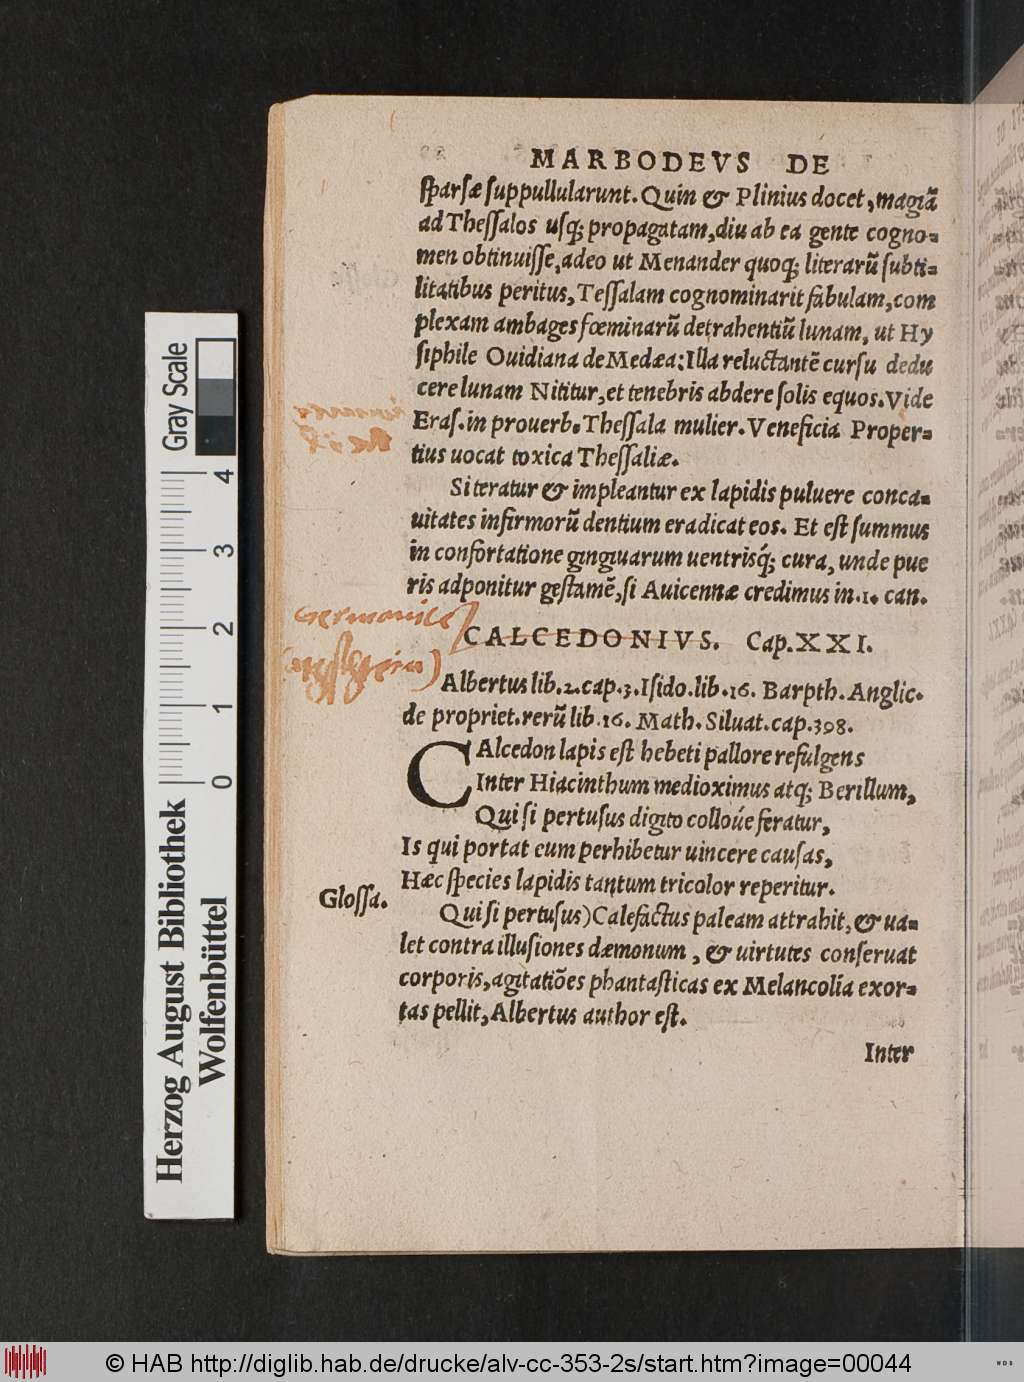 MARBODEVS DE
sparsæ suppullularunt. Quin & Plinius docet, magiã
ad Thessalos usq; propagatam, diu ab ea gente cogno-
men obtinuisse, adeo ut Menander quoq; literarũ subti-
litatibus peritus, Tessalam cognominarit fabulam, com
plexam ambages fœminarũ detrahentiũ lunam, ut Hy
siphile Ouidiana de Medæa: Illa reluctantẽ cursu dedu
cere lunam Nititur, et tenebris abdere solis equos. Vide
Eras. in prouerb. Thessala mulier. Veneficia Proper-
tius uocat toxica Thessaliæ.
Si teratur & impleantur ex lapidis puluere conca-
uitates infirmorũ dentium eradicat eos. Et est summus
in confortatione gingiuarum uentrisq́; cura, unde pue
ris adponitur gestamẽ, si Auicennæ credimus in .1. can.
Germanice
CALCEDONIVS. Cap. XXI.
Albertus lib. 2. cap. 3. Isido. lib. 16. Barpth. Anglic.
de propriet. rerũ lib. 16. Math. Siluat. cap. 398.
CAlcedon lapis est hebeti pallore refulgens
Inter Hiacinthum medioximus atq; Berillum,
Qui si pertusus digito collóue feratur,
Is qui portat eum perhibetur uincere causas,
Hæc species lapidis tantum tricolor reperitur.
Glossa.
Qui si pertusus) Calefactus paleam attrahit, & ua-
let contra illusiones dæmonum, & uirtutes conseruat
corporis, agitatiões phantasticas ex Melancolia exor-
tas pellit, Albertus author est.
Inter
Gray Scale
4
3
2
1
0
Herzog August Bibliothek
Wolfenbüttel
© HAB http://diglib.hab.de/drucke/alv-cc-353-2s/start.htm?image=00044